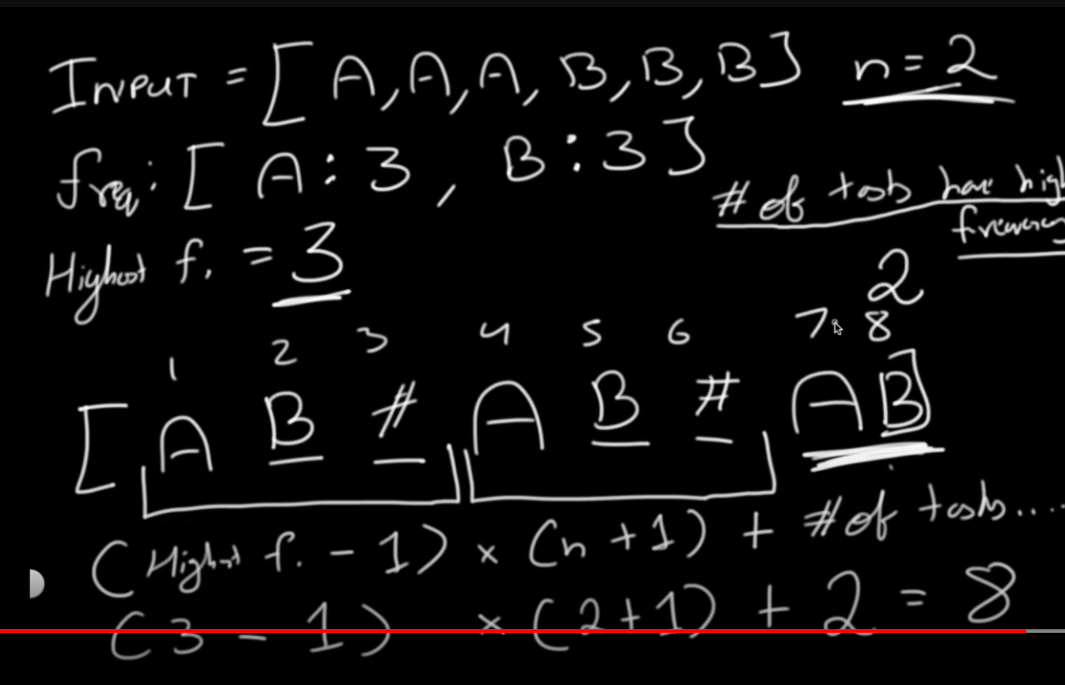 INPUT = [A, A, A, B, B, B] n = 2
freq: [ A : 3 , B : 3 ]
# of tasks have high
Highest f. = 3
2
1 2 3 4 5 6 7 8
[ A B # A B # A B ]
(Highest f. - 1) × (n + 1) + # of tasks....
(3 - 1) × (2 + 1) + 2 = 8